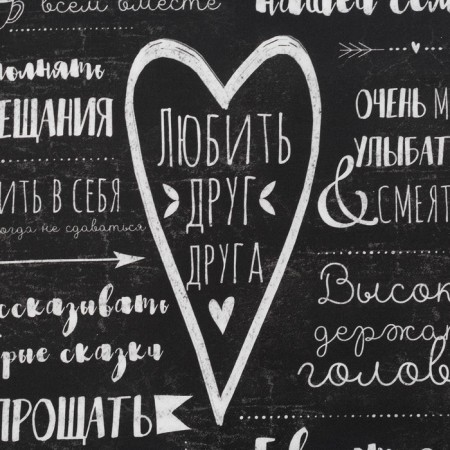 всем вместе
нашей сем
полнять
ещания
ить в себя
огда не сдаваться
ссказывать
рые сказки
прощать
Любить
друг
друга
очень м
улыбат
& смеят
Высок
держат
голов